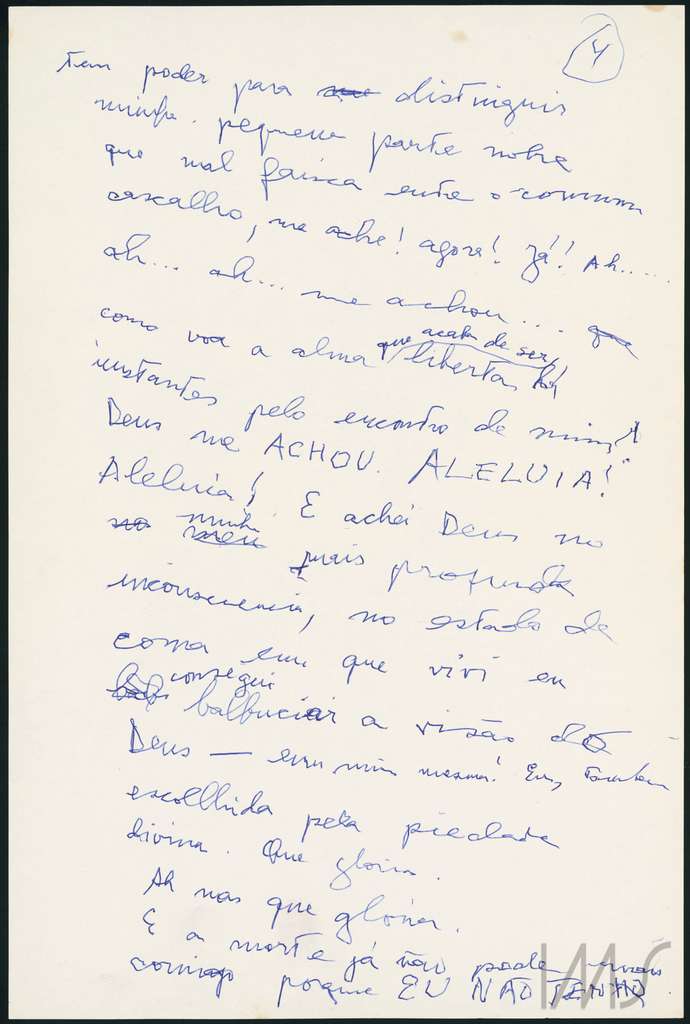 4
tem poder para distinguir
minha pequena parte nobre
que mal faisca entre o comum
cascalho, me ache! agora! já! Ah.....
ah... ah... me achou... que
que acaba de ser
como voa a alma liberta,
instantes pelo encontro de mim!
Deus me ACHOU. ALELUIA!
Aleluia! E achei Deus no
minha
no meu mais profunda
inconsciencia, no estado de
coma em que vivi eu
consegui
balbuciar a visão de
Deus — em mim mesma! Eu, tambem
escolhida pela piedade
divina. Que gloria.
Ah mas que glória.
E a morte já não pode mais
comigo porque EU NÃO TENHO
IMS